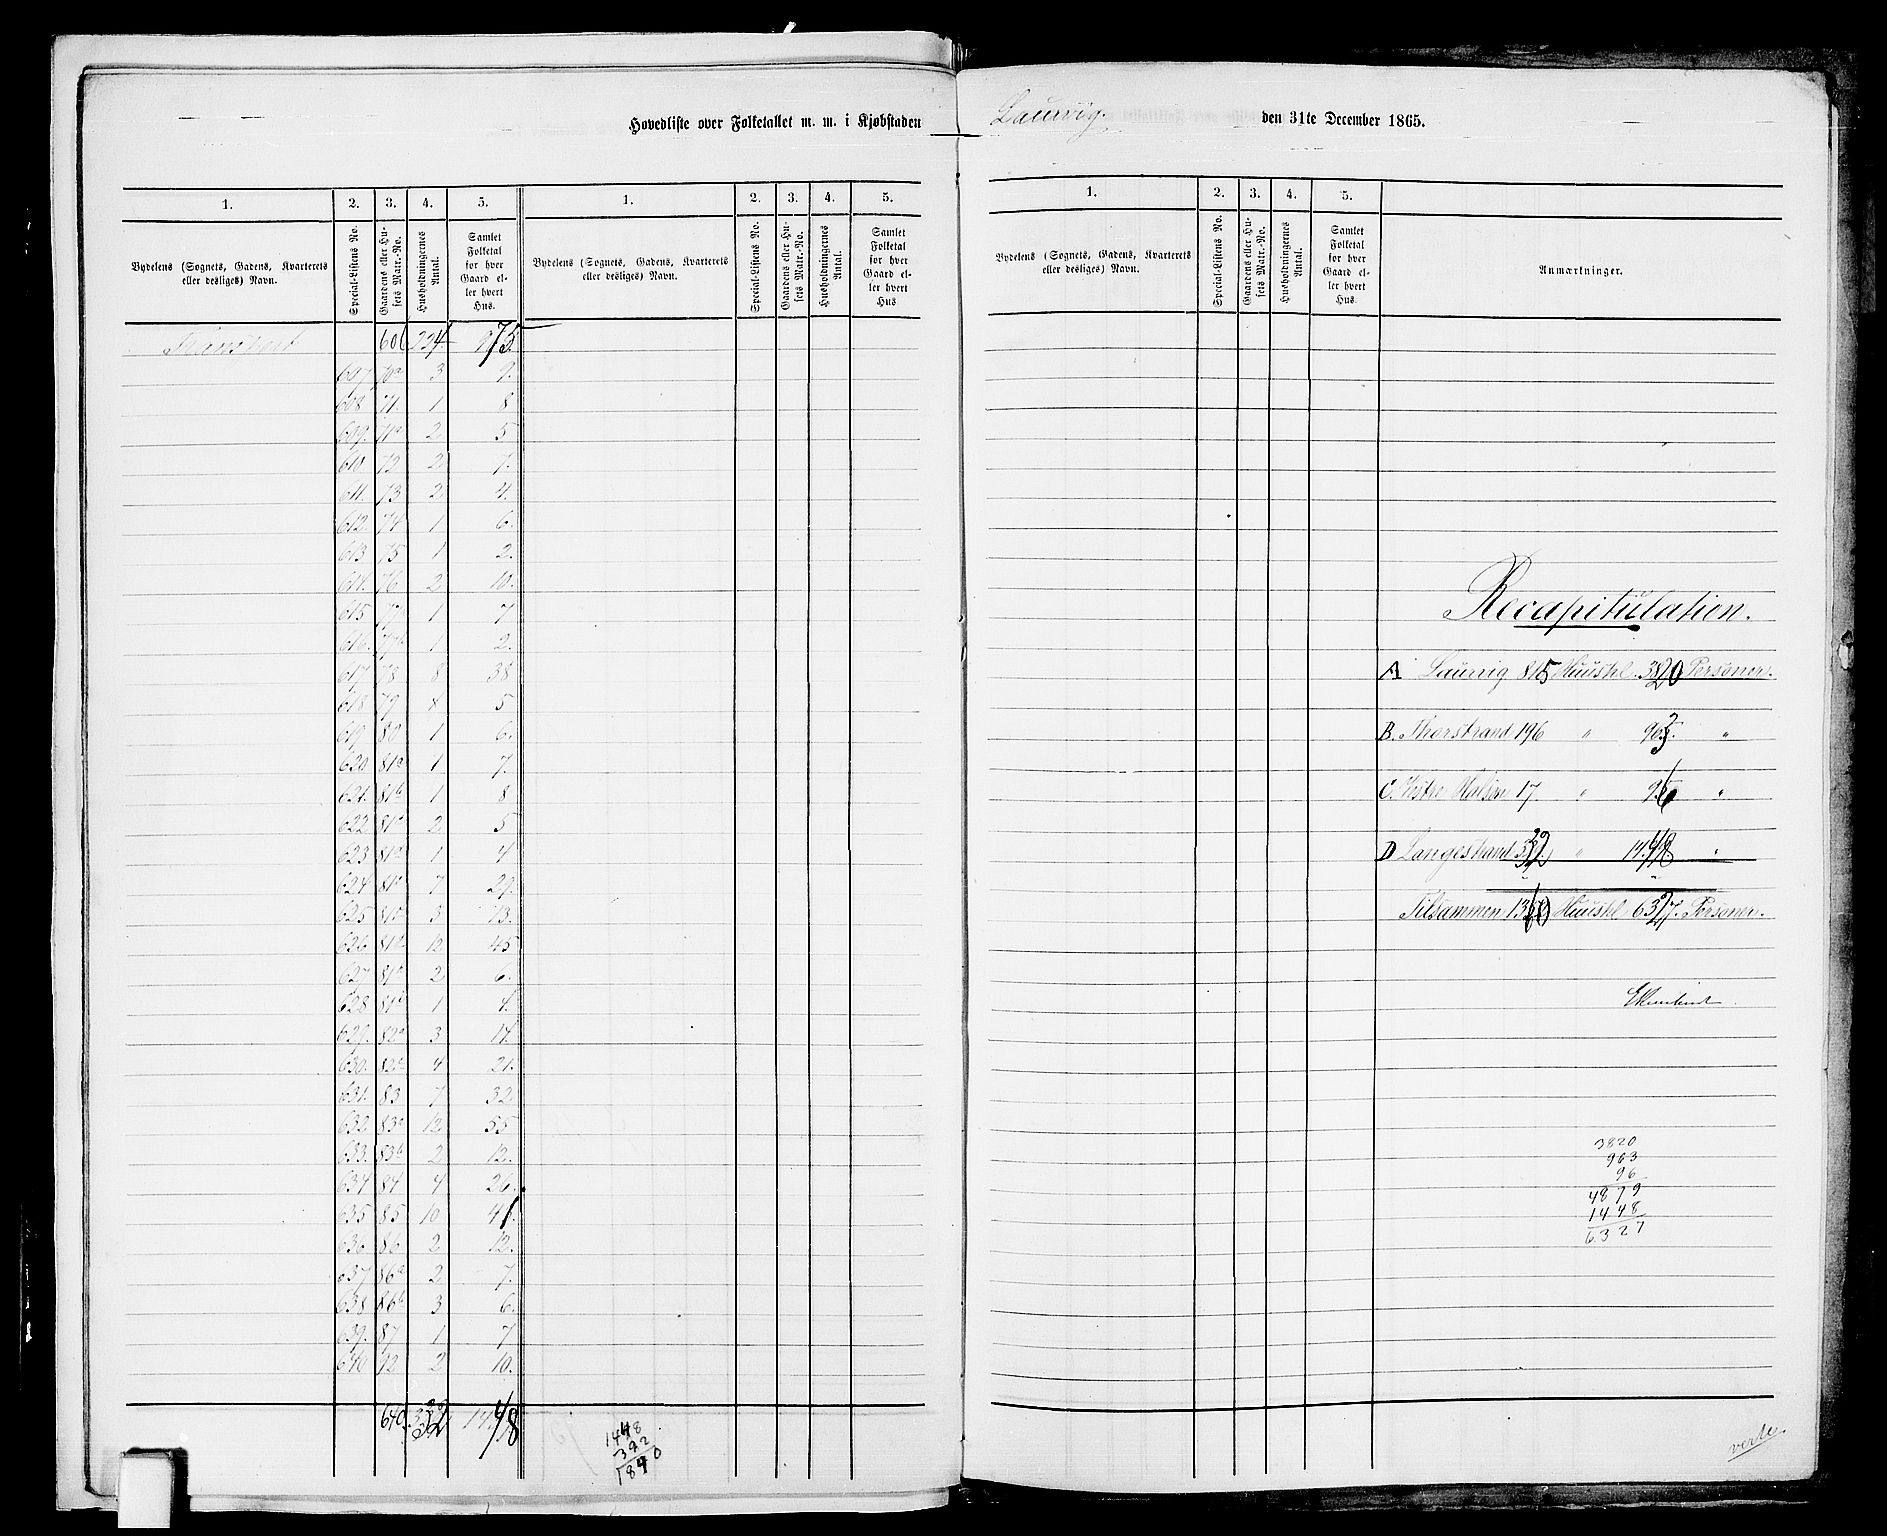 Hovedliste over Folketallet m. m. i Kjøbstaden Laurvig. den 31te December 1865.
1. 2. 3. 4. 5. 1. 2. 3. 4. 5.
Bydelens (Sognets, Gadens, Kvarterets eller desliges) Navn. Special-Listens No. Gaardens eller Husets Matr.-No. Husholdningernes Antal. Samlet Folketal for hver Gaard eller hvert Hus.
Bydelens (Sognets, Gadens, Kvarterets eller desliges) Navn. Special-Listens No. Gaardens eller Husets Matr.-No. Husholdningernes Antal. Samlet Folketal for hver Gaard eller hvert Hus
Transport 606 224 975
607 70a 3 9.
608 71. 1 8
609. 71a 2 5
610 72 2 7.
611. 73 2 4.
612. 74 1 6.
613 75 1 2.
614. 76 2 10.
615 77a 1 7
616. 77b 1 2.
617 78 8 38
618 79 5
619 80 1 6.
620. 81a 1 7.
621. 81b 1 8
622 2 5
623 1 4
624 7 29.
625 3 13.
626 12 45
627. 2 6.
628 1 4.
629. 82a 3 14.
630. 4 21.
631. 83 7 32
632 83a 12 55
633. 83b 2 12.
634 84 4 26.
635 85 10 41.
636 86 2 12.
637 86a 2 7.
638 86b 3 6.
639. 87 1 7
640 92 2 10.
640. 332 1448
1448
392
1840
1. 2. 3. 4. 5.
Bydelens (Sognets, Gadens, Kvarterets eller desliges) Navn. Special-Listens No. Gaardens eller Husets Matr.-No. Husholdningernes Antal. Samlet Folketal for hver Gaard eller hvert Hus. Anmærkninger.
Recapitulation.
A Laurvig 815 Huushl. 3820 Personer.
B. Thorstrand 196 " 963. "
C. Vestre Halsen 17 " 96 "
D Langestrand 332 " 1448. "
Tilsammen 1360 Huushl 6327. Personer.
3820
963
96
4879
1448
6327
verte.